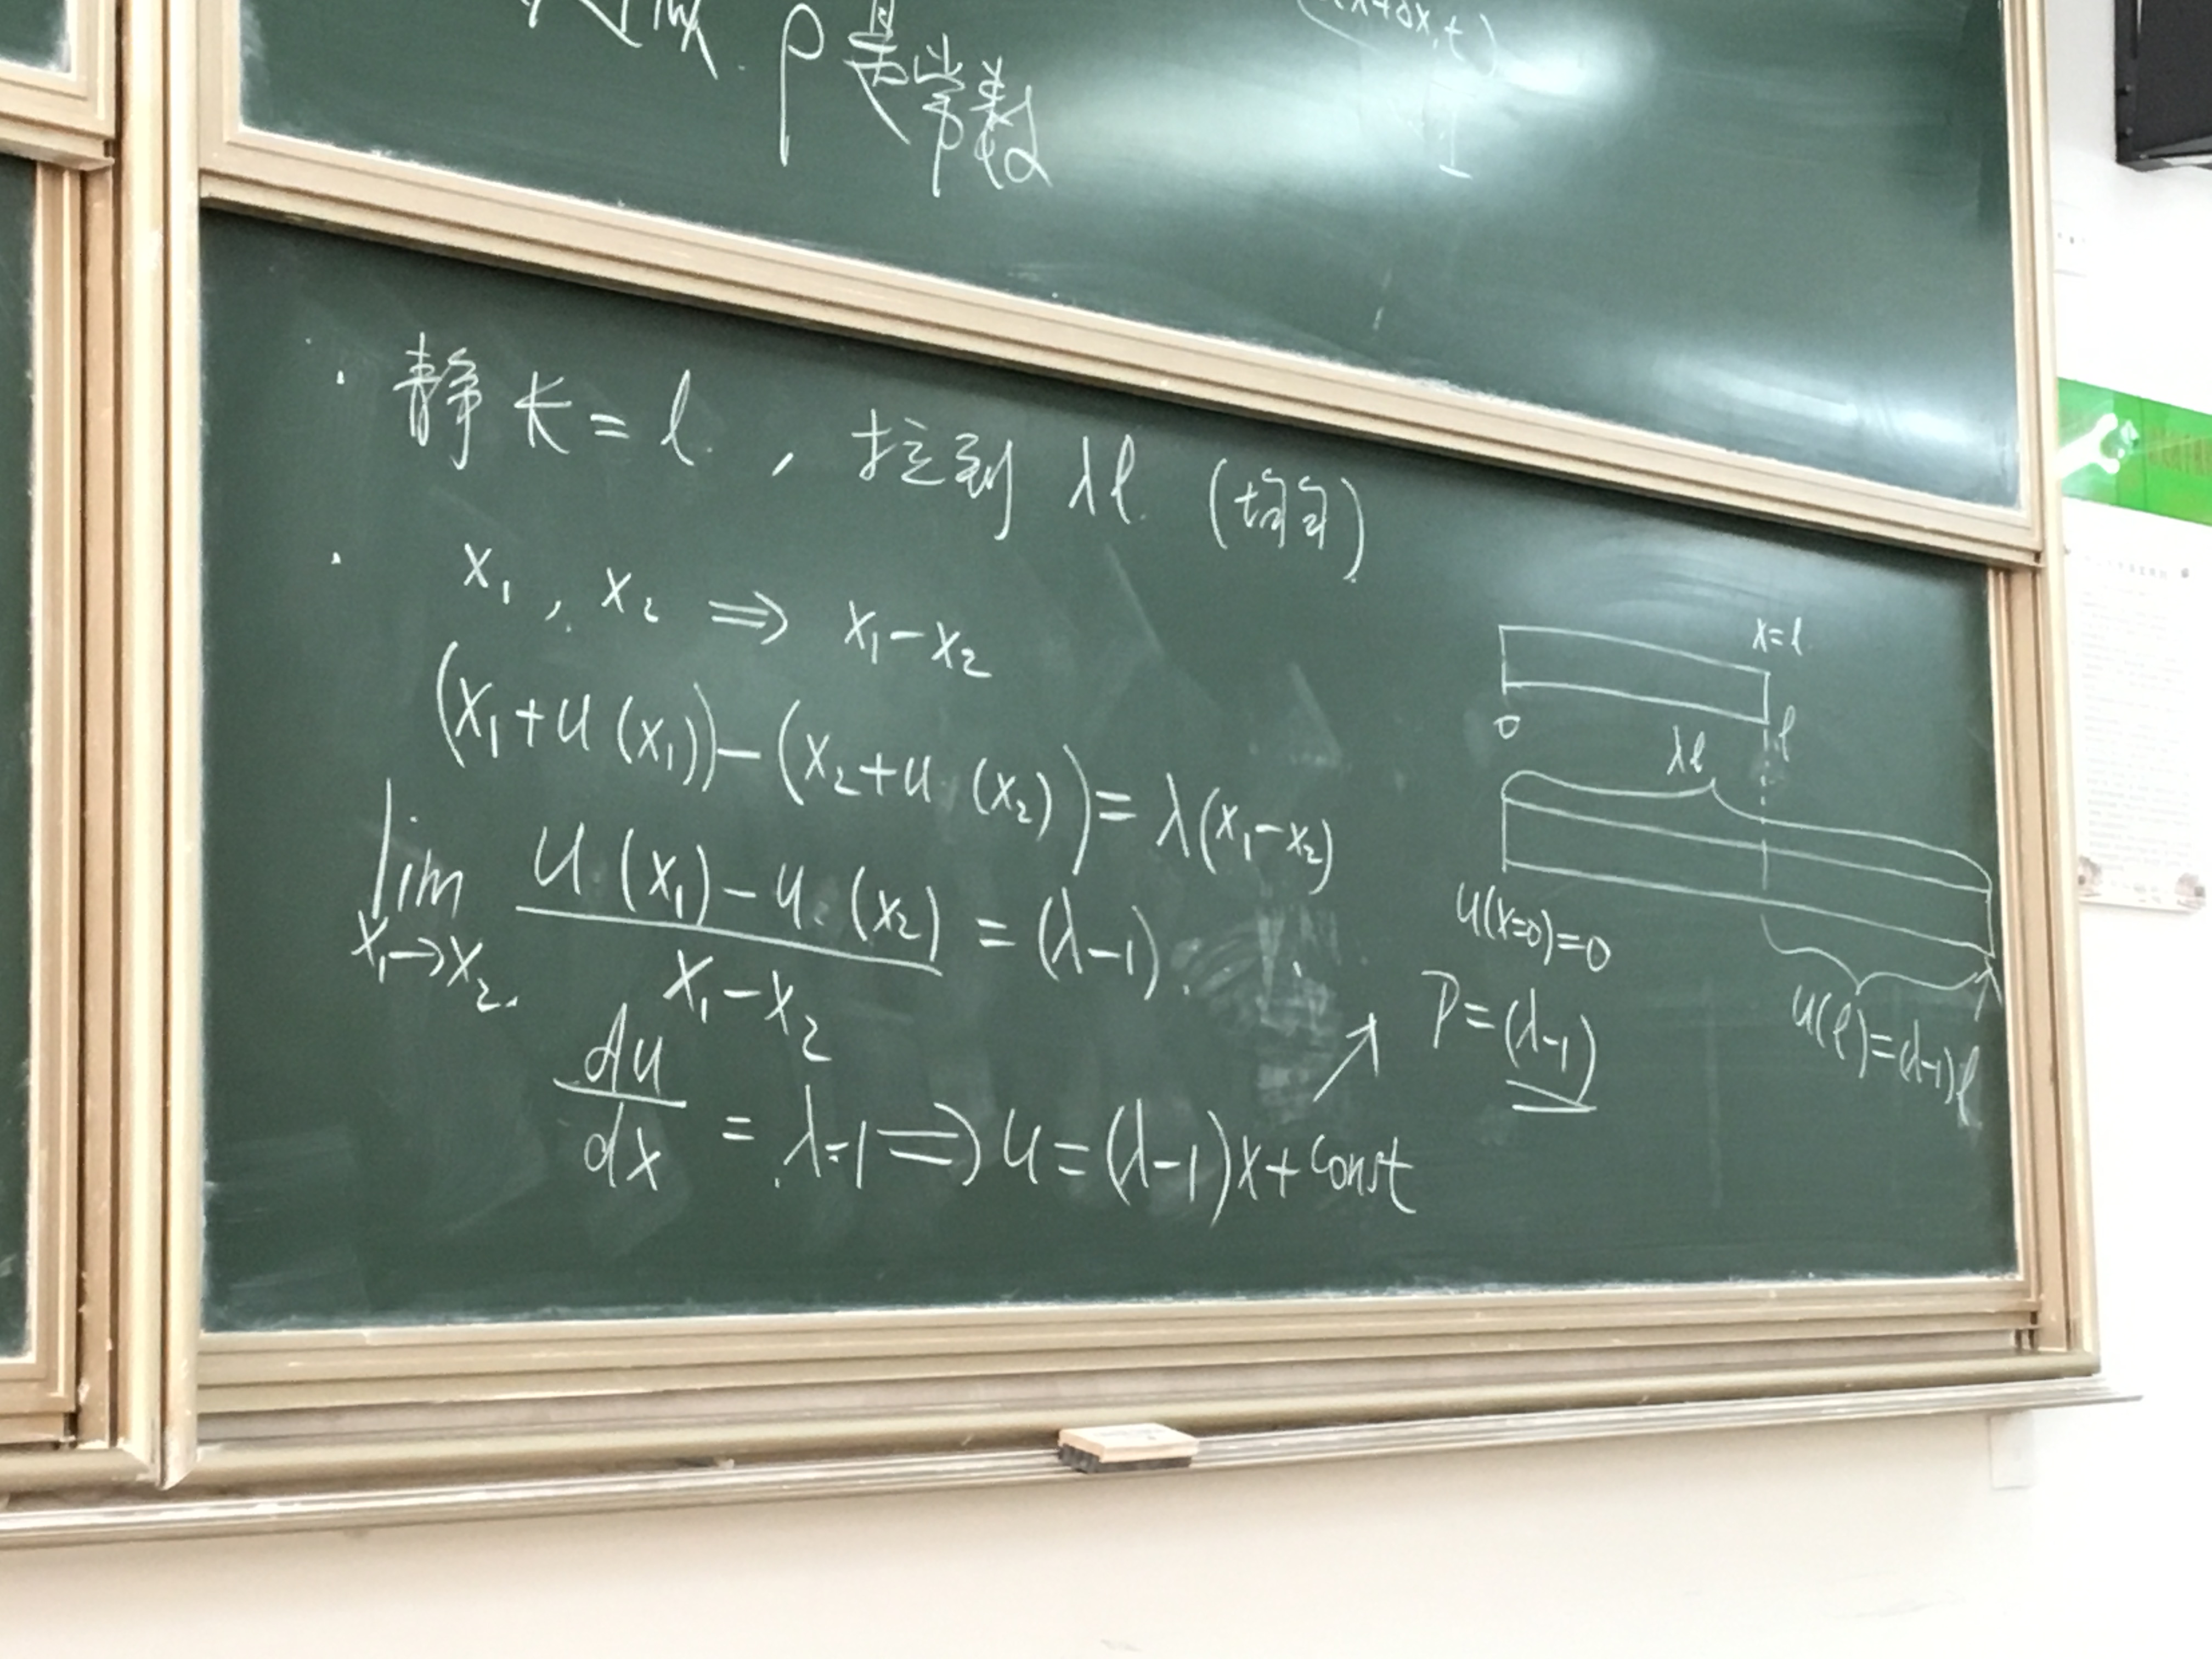 ρ是常数
(x+δx,t)
· 静长 = l , 拉到 λl (均匀)
· x₁ , x₂ ⇒ x₁-x₂
(x₁+u(x₁))-(x₂+u(x₂))=λ(x₁-x₂)
lim x₁→x₂ u(x₁)-u(x₂) / x₁-x₂ = (λ-1)
du/dx = λ-1 ⇒ u=(λ-1)x+const
x=l
0
l
λl
u(x=0)=0
P=(λ-1)
u(l)=(λ-1)l